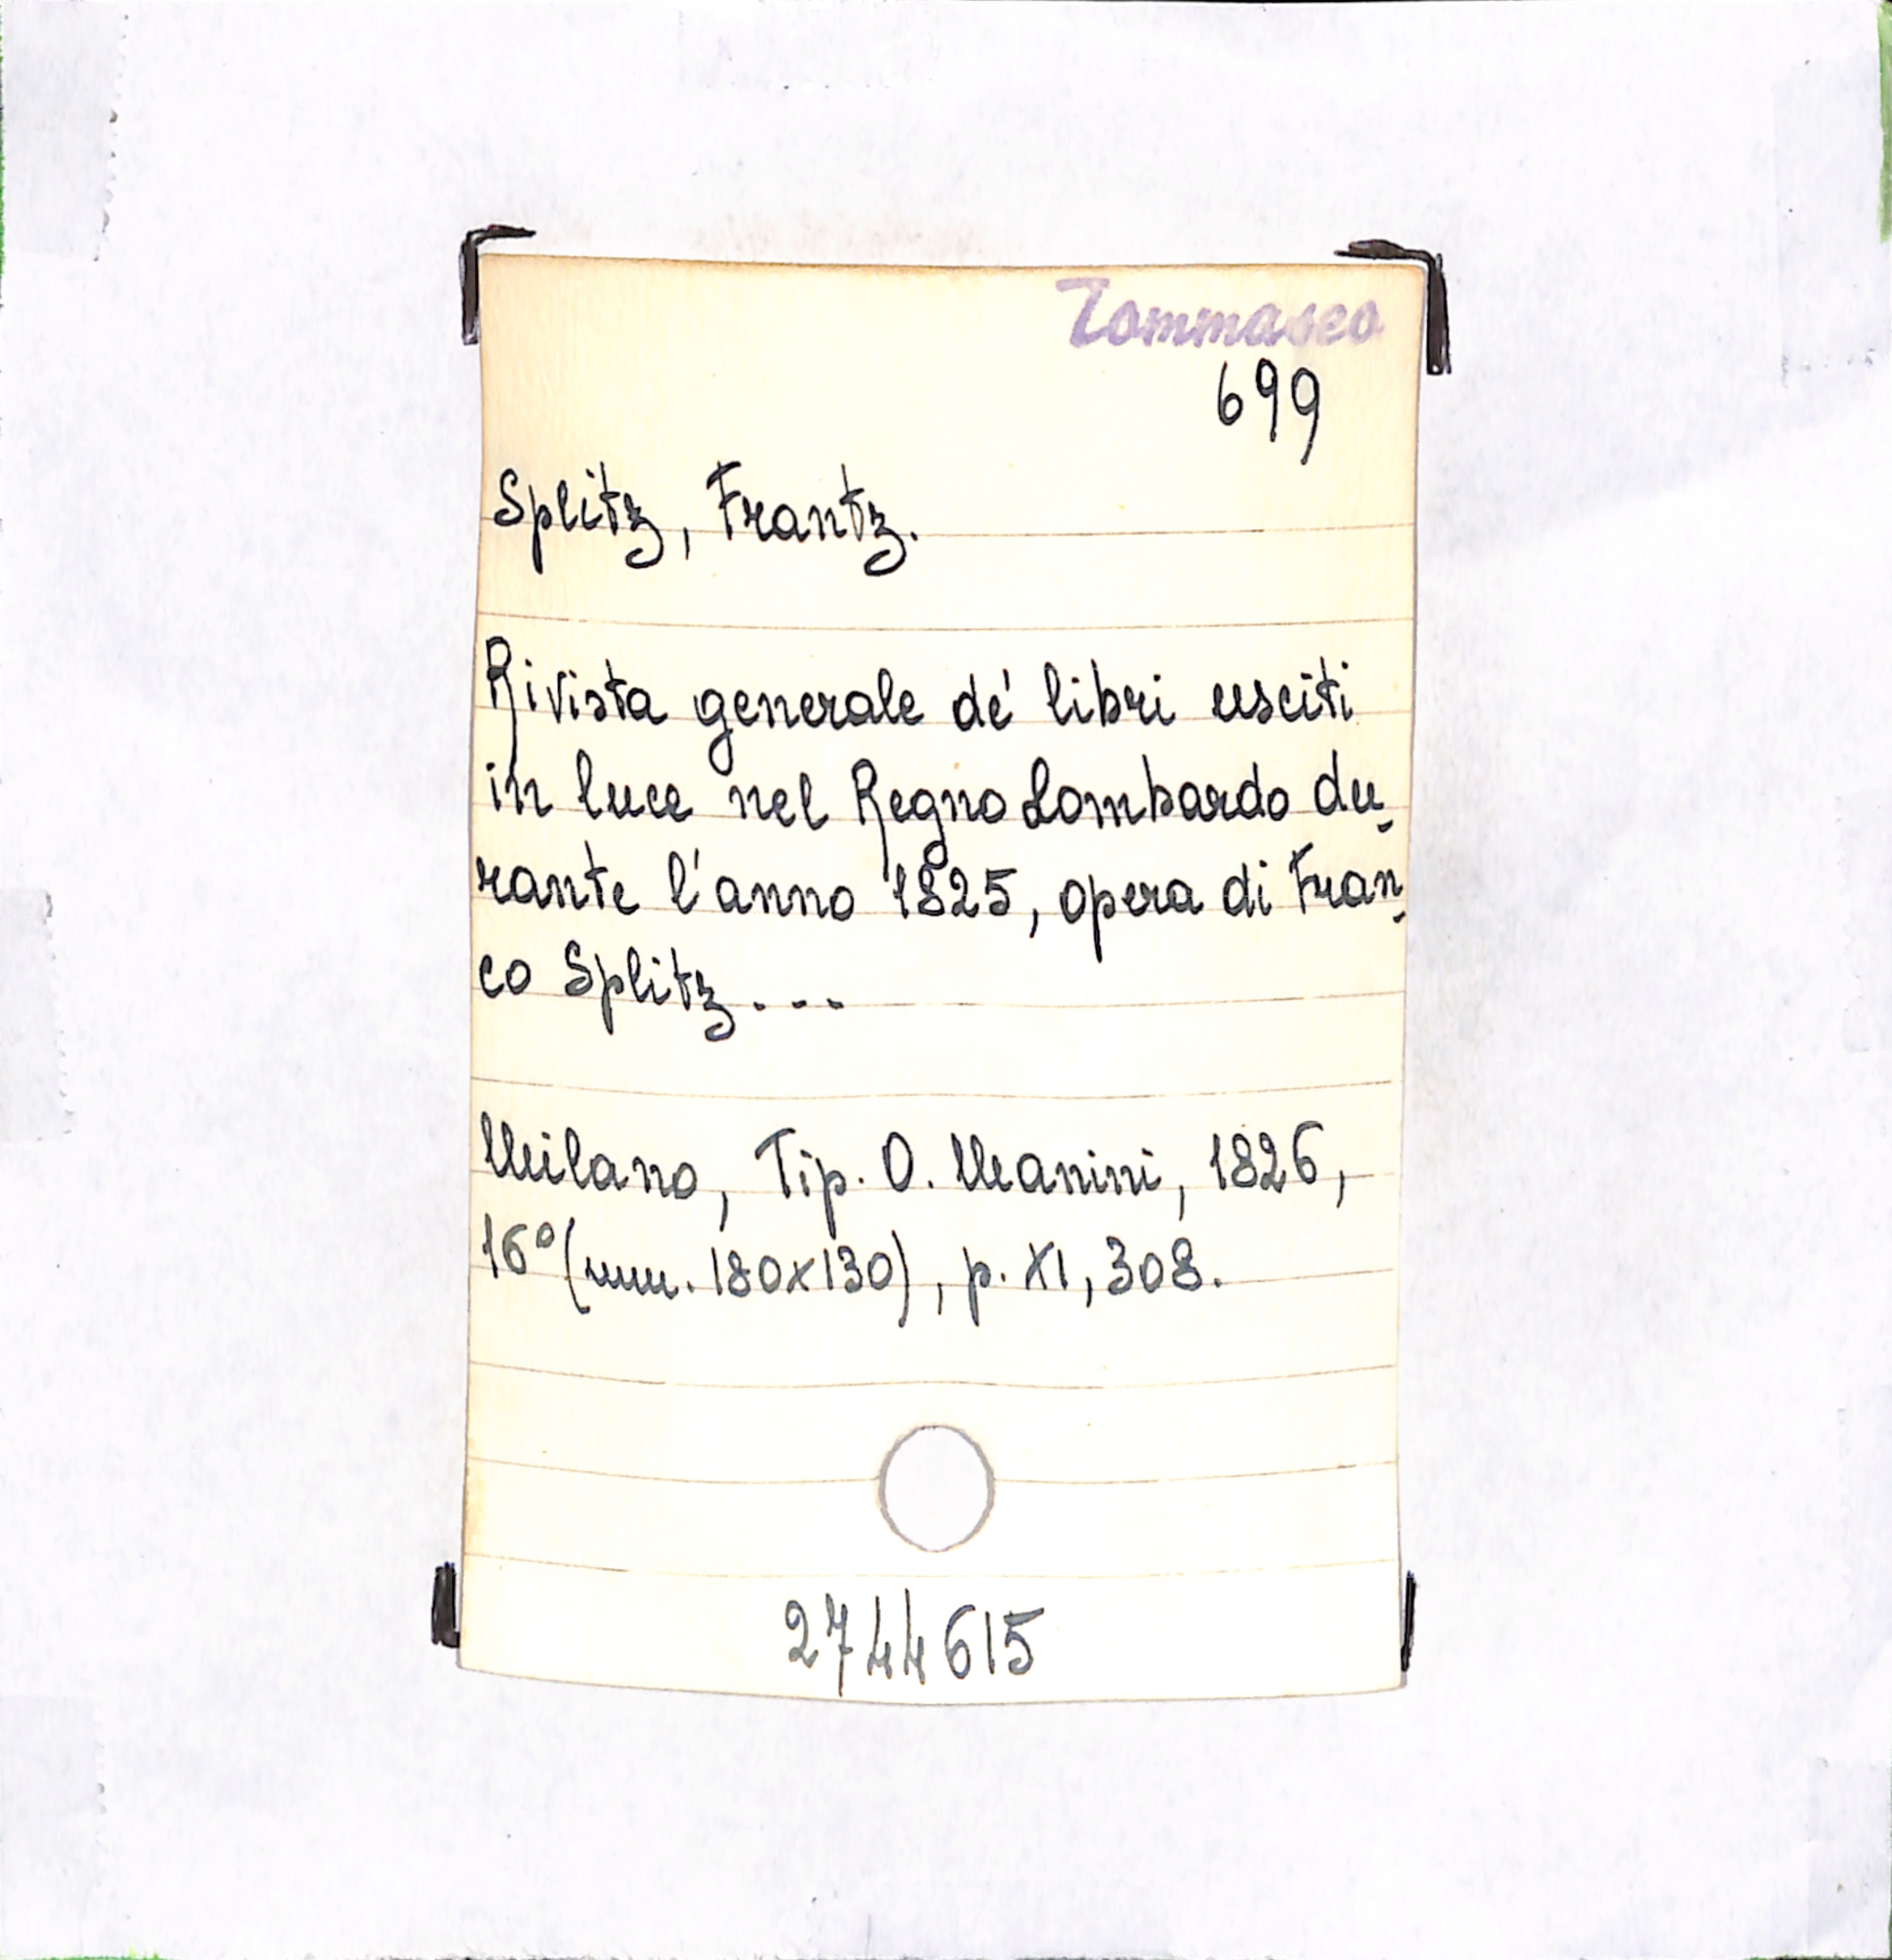 Tommaseo
699
Splitz, Frantz.
Rivista generale de' libri usciti
in luce nel Regno Lombardo du-
rante l'anno 1825, opera di Fran-
co Splitz. . . .
Milano, Tip. O. Manini, 1826,
16° (mm. 180x130), p. XI, 308.
2744615